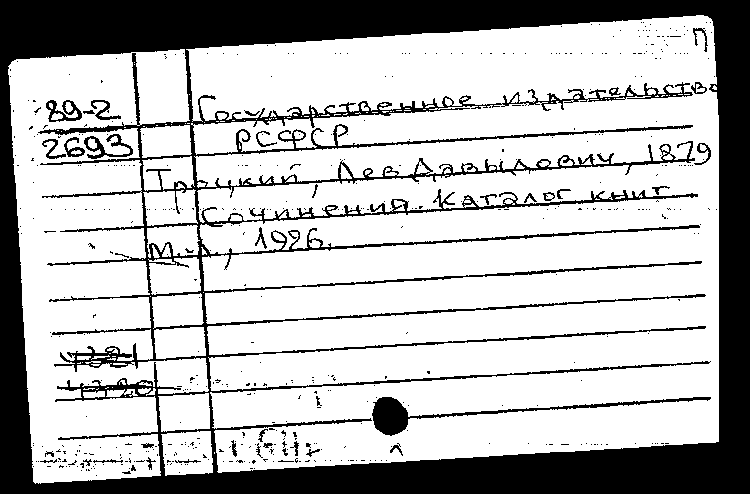 П
89-2
2693
Государственное издательство
РСФСР
Троцкий, Лев Давыдович, 1879
Сочинения. Каталог книг
М.-Л., 1926.
4321
4720